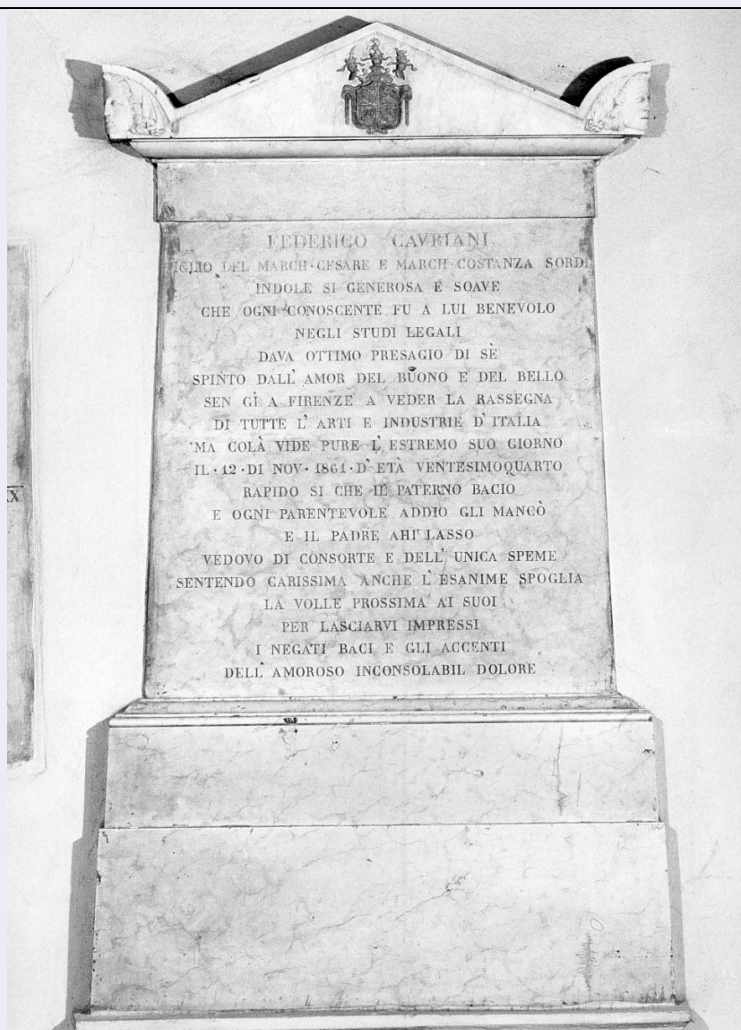 FEDERIGO CAVRIANI
IGLIO DEL MARCH·CESARE E MARCH·COSTANZA SORDI
INDOLE SI GENEROSA E SOAVE
CHE OGNI CONOSCENTE FU A LUI BENEVOLO
NEGLI STUDI LEGALI
DAVA OTTIMO PRESAGIO DI SÈ
SPINTO DALL' AMOR DEL BUONO E DEL BELLO
SEN GÌ A FIRENZE A VEDER LA RASSEGNA
DI TUTTE L' ARTI E INDUSTRIE D' ITALIA
MA COLÀ VIDE PURE L' ESTREMO SUO GIORNO
IL·12·DI NOV·1861·D' ETÀ VENTESIMOQUARTO
RAPIDO SI CHE IL PATERNO BACIO
E OGNI PARENTEVOLE ADDIO GLI MANCÒ
E IL PADRE AHI LASSO
VEDOVO DI CONSORTE E DELL' UNICA SPEME
SENTENDO CARISSIMA ANCHE L' ESANIME SPOGLIA
LA VOLLE PROSSIMA AI SUOI
PER LASCIARVI IMPRESSI
I NEGATI BACI E GLI ACCENTI
DELL' AMOROSO INCONSOLABIL DOLORE
IX